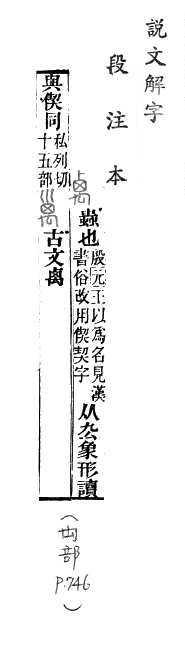 説文解字
段注本
蟲也殷元王以爲名見漢
書俗改用偰契字
从厹象形讀
與偰同私列切
十五部
古文禼
(禸部
P.746)